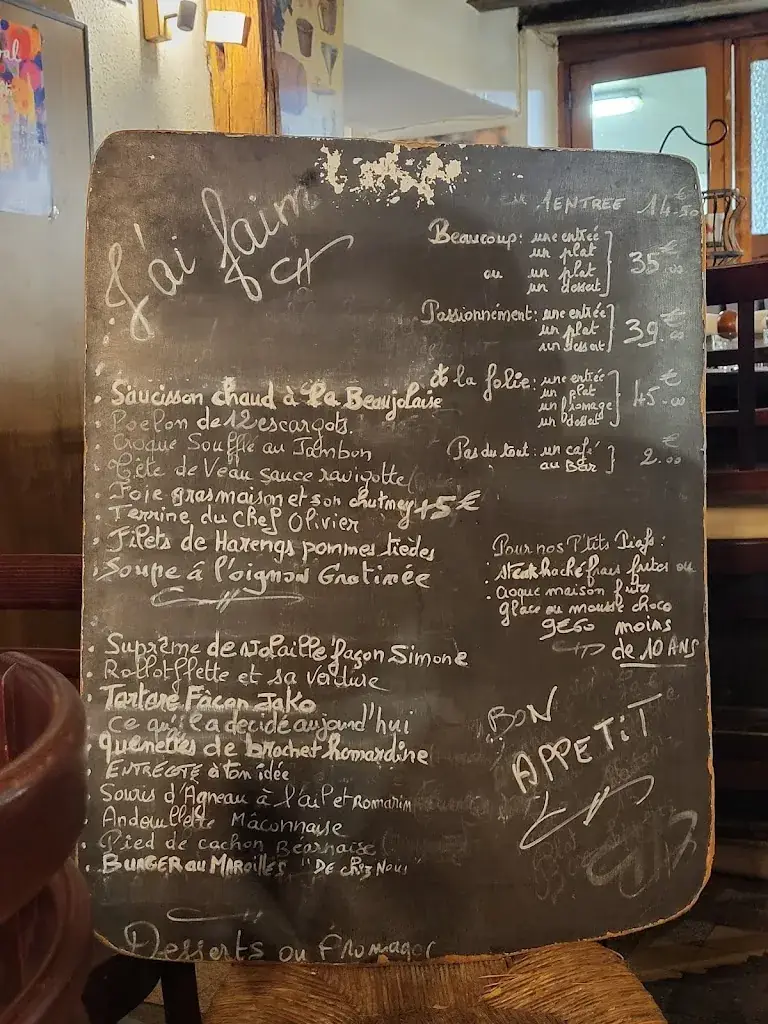 J'ai faim
1 ENTREE 14.50€
Beaucoup: une entrée
un plat
ou un plat
un dessert
35.00€
Passionnément: une entrée
un plat
un dessert
39.00€
à la folie: une entrée
un plat
un fromage
un dessert
45.00€
Pas du tout: un café
au BAR
2.00€
Saucisson chaud à la Beaujolaise
Poelon de 12 escargots.
Croque Soufflé au Jambon
Tête de Veau sauce ravigotte
Foie gras maison et son chutney +5€
Terrine du Chef Olivier
Filets de Harengs pommes tiédes
Soupe à l'oignon Gratinée
Pour nos P'tits Piafs:
steak haché frais frites ou
croque maison frites
glace ou mousse choco
9€50 moins
de 10 ANS
Suprême de volaille façon Simone
Rollotflette et sa verdure
Tartare Façon Jako
Ce qu'il a décidé aujourd'hui
quenelles de brochet homardine
ENTRECOTE à ton idée
Souris d'Agneau à l'ail et Romarin
Andouillette Mâconnaise
Pied de cochon Béarnaise
BURGER au MAROILLES "DE chez Nous"
BON
APPETIT
Desserts ou Fromages